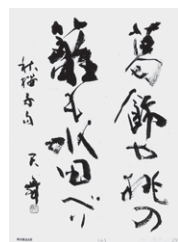 葛飾や桃の
籬も水田べり
秋櫻子句